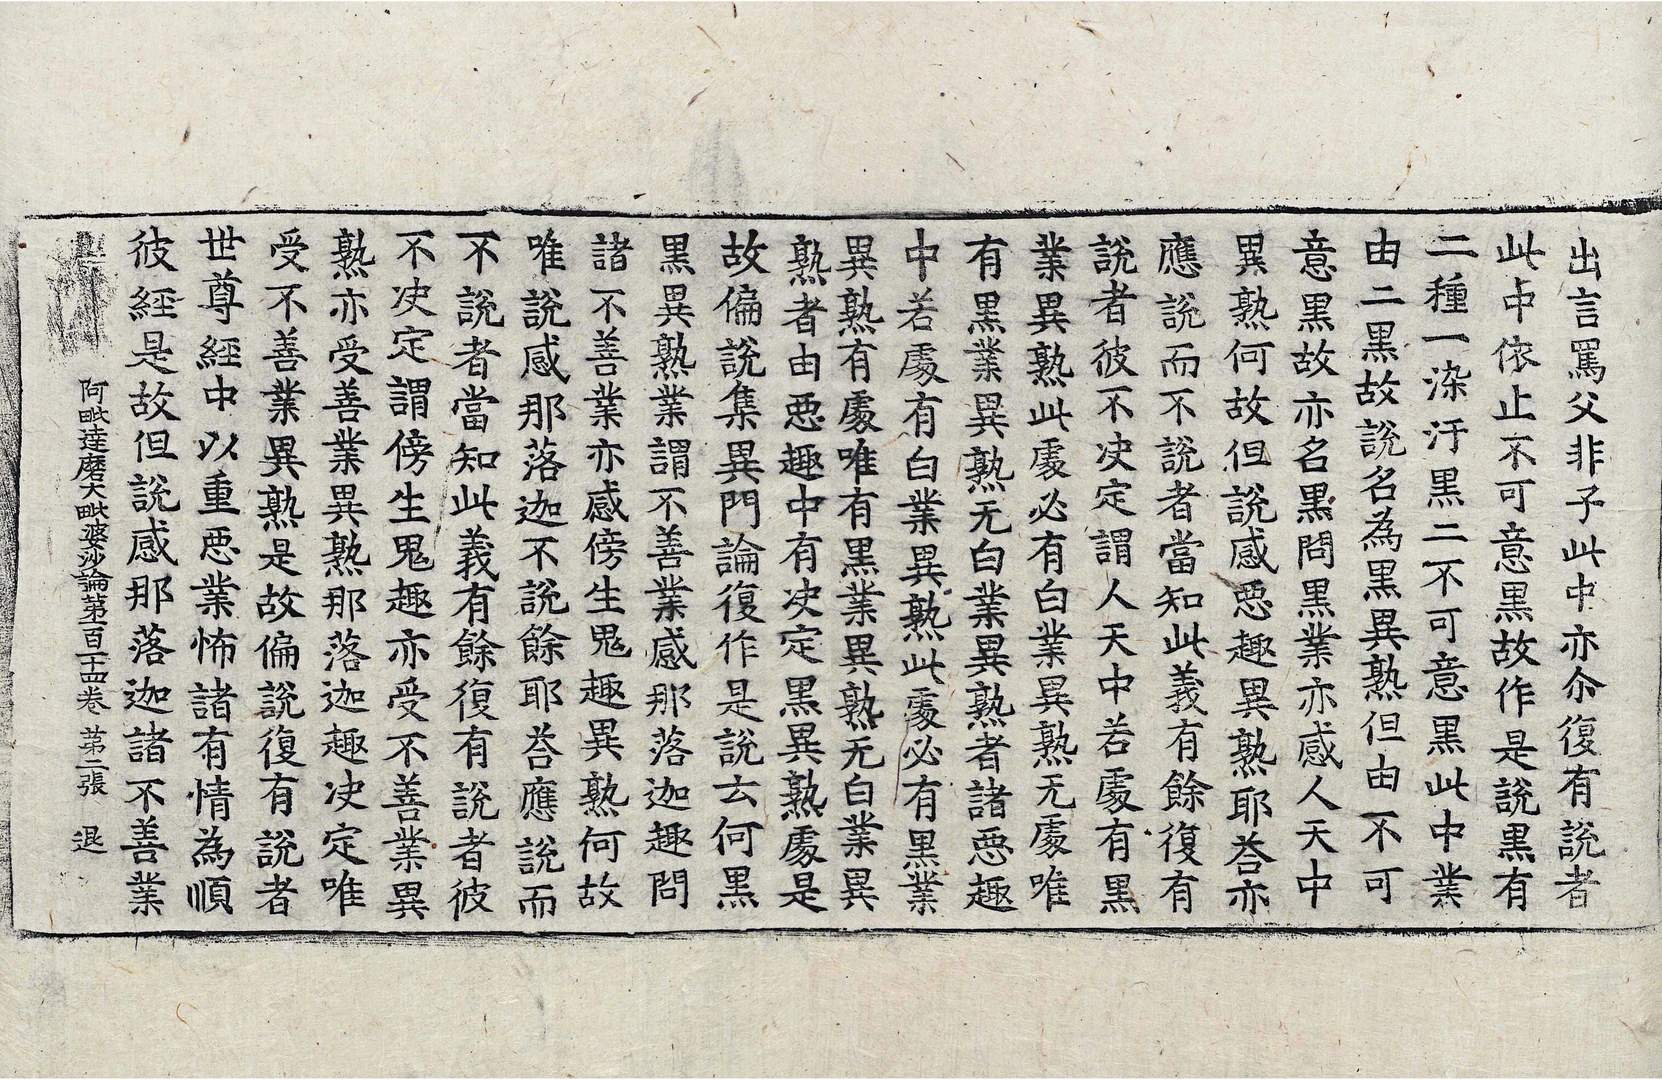 出言罵父非子此中亦尒復有說者
此中依止不可意黒故作是說黒有
二種一染汙黒二不可意黒此中業
由二黒故說名為黒異熟但由不可
意黒故亦名黒問黒業亦感人天中
異熟何故但說感惡趣異熟耶荅亦
應說而不說者當知此義有餘復有
說者彼不决定謂人天中若處有黒
業異熟此處必有白業異熟无處唯
有黒業異熟无白業異熟者諸惡趣
中若處有白業異熟此處必有黒業
異熟有處唯有黒業異熟无白業異
熟者由惡趣中有决定黒異熟處是
故偏說集異門論復作是說云何黒
黒異熟業謂不善業感那落迦趣問
諸不善業亦感傍生鬼趣異熟何故
唯說感那落迦不說餘耶荅應說而
不說者當知此義有餘復有說者彼
不决定謂傍生鬼趣亦受不善業異
熟亦受善業異熟那落迦趣决定唯
受不善業異熟是故偏說復有說者
世尊經中以重惡業怖諸有情為順
彼經是故但說感那落迦諸不善業
阿毗達磨大毗婆沙論第一百一十四卷 第二張 退